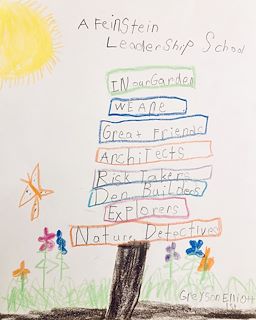 A FeinStein
LeaderShip School
IN our Garden
WE ARE
Great Friends
Architects
Risk Takers
Den Builders
EXPlorers
Nature Detectives
Greyson Elliott
1st